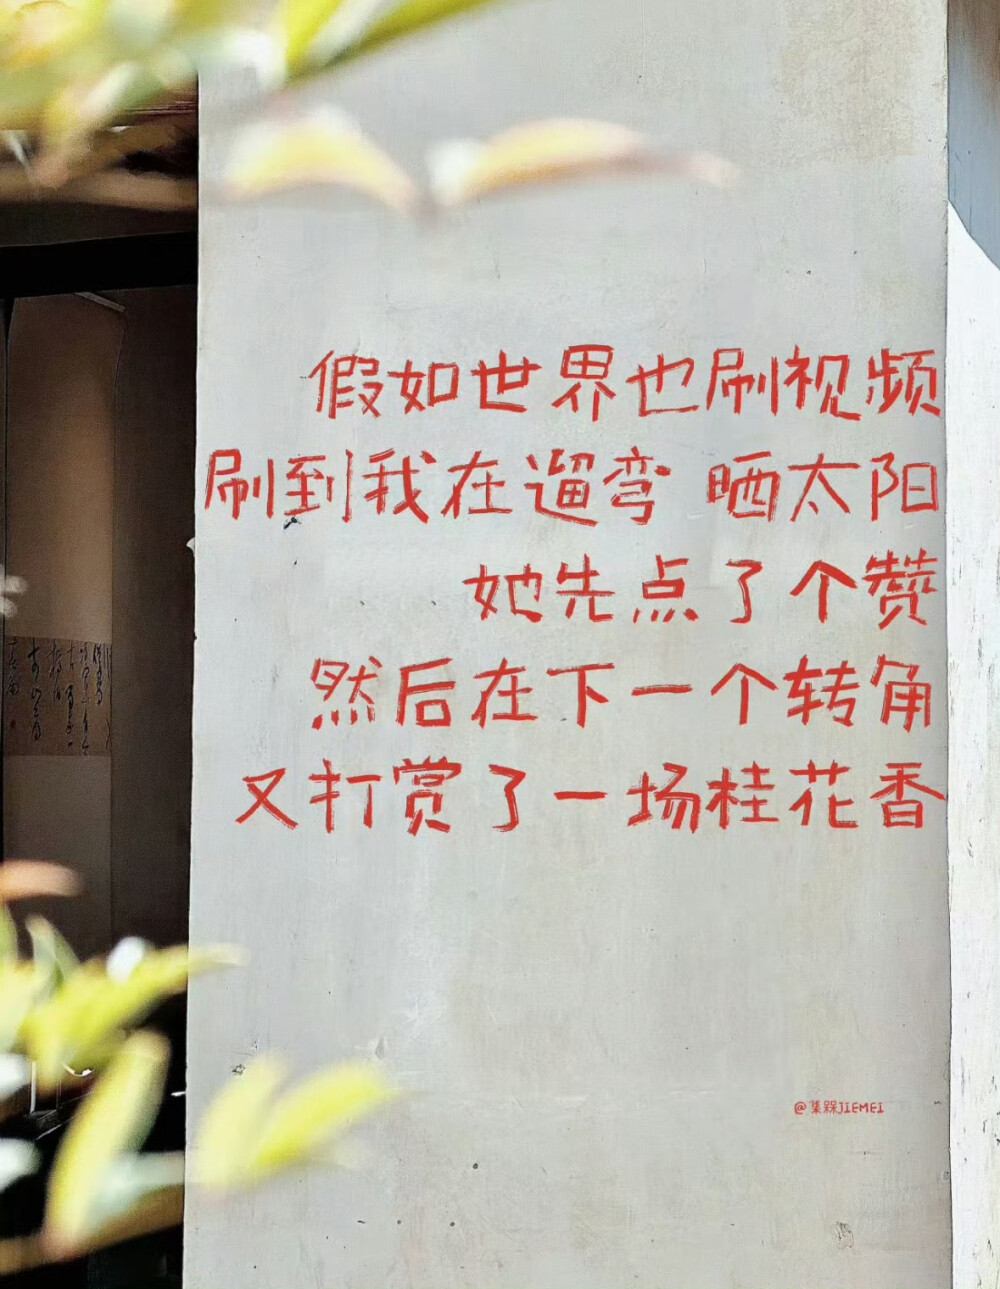 假如世界也刷视频
刷到我在遛弯 晒太阳
她先点了个赞
然后在下一个转角
又打赏了一场桂花香